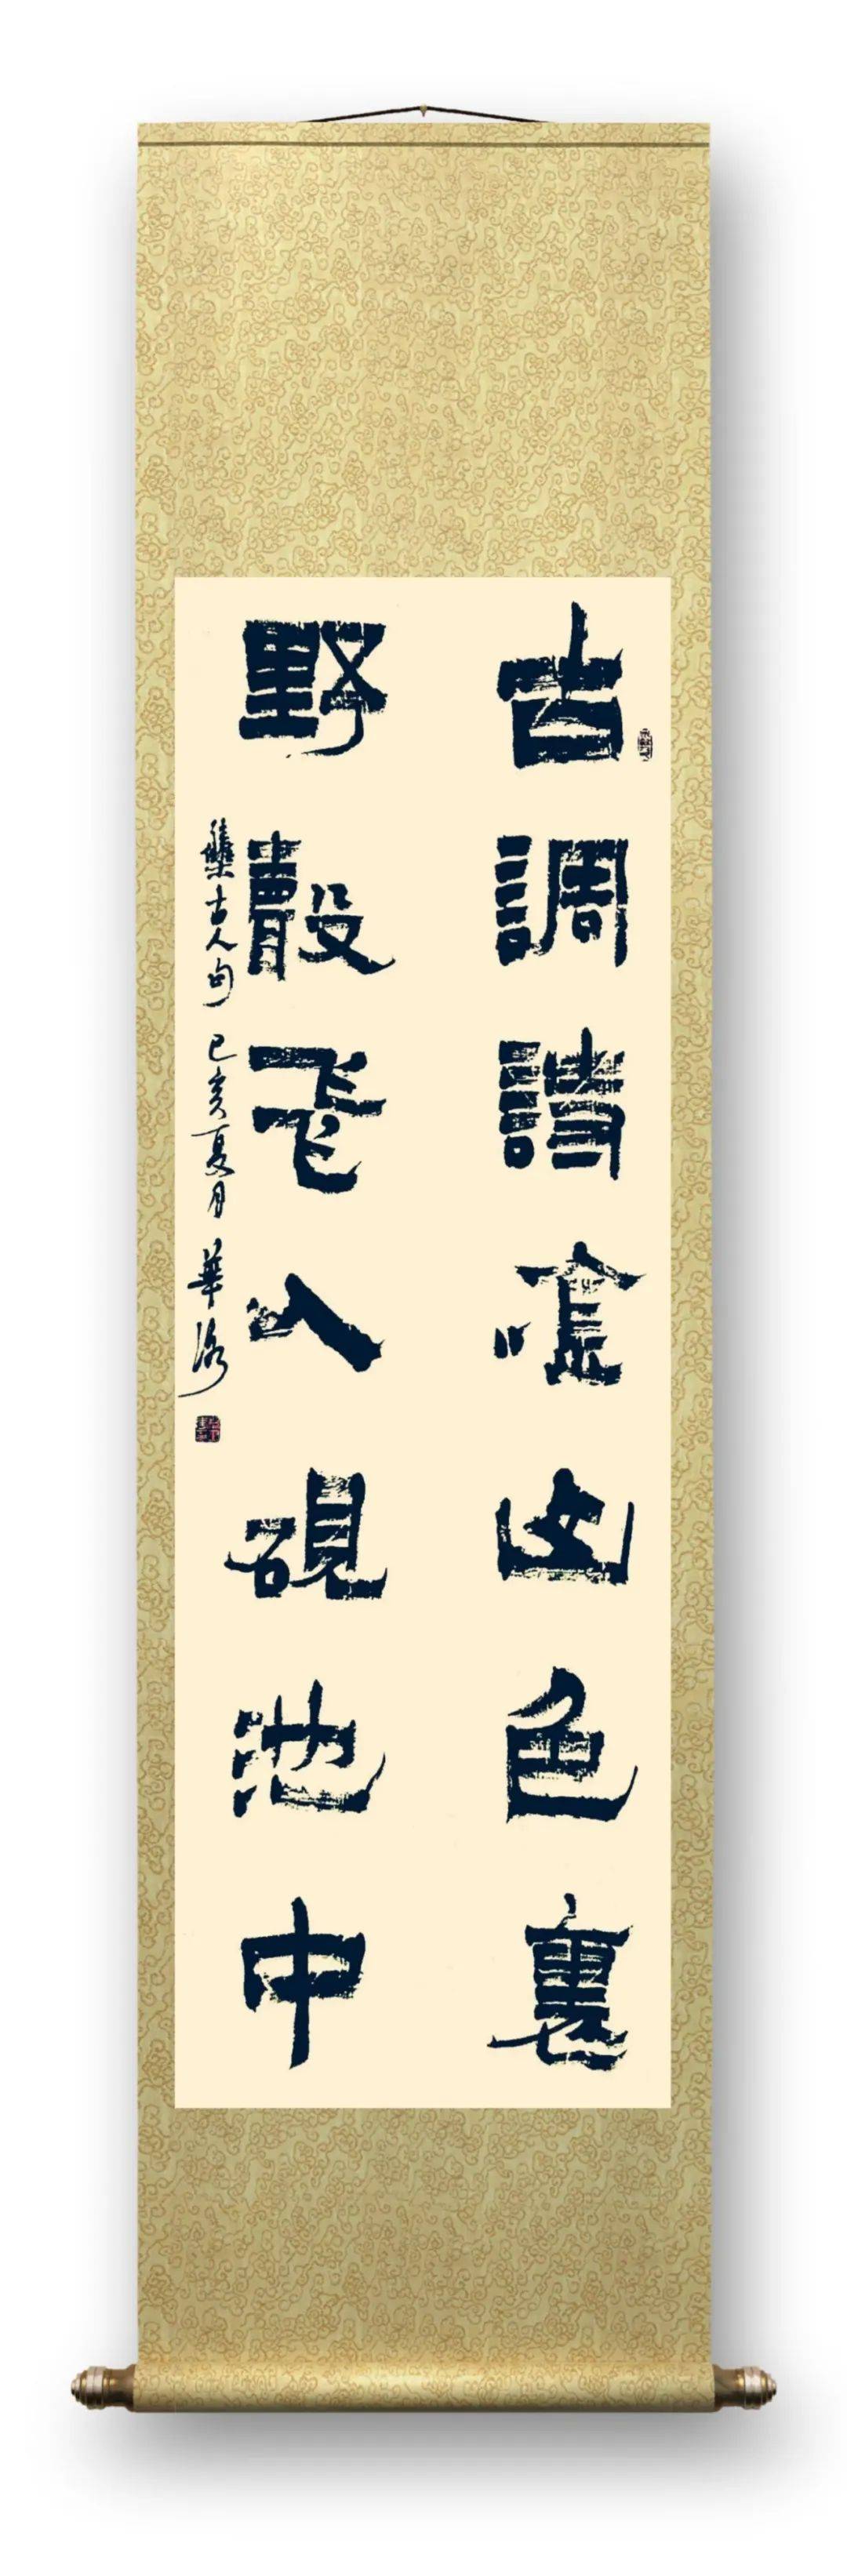 古調詩唫山色裏
野聲飛入硯池中
集古人句 己亥夏月 華